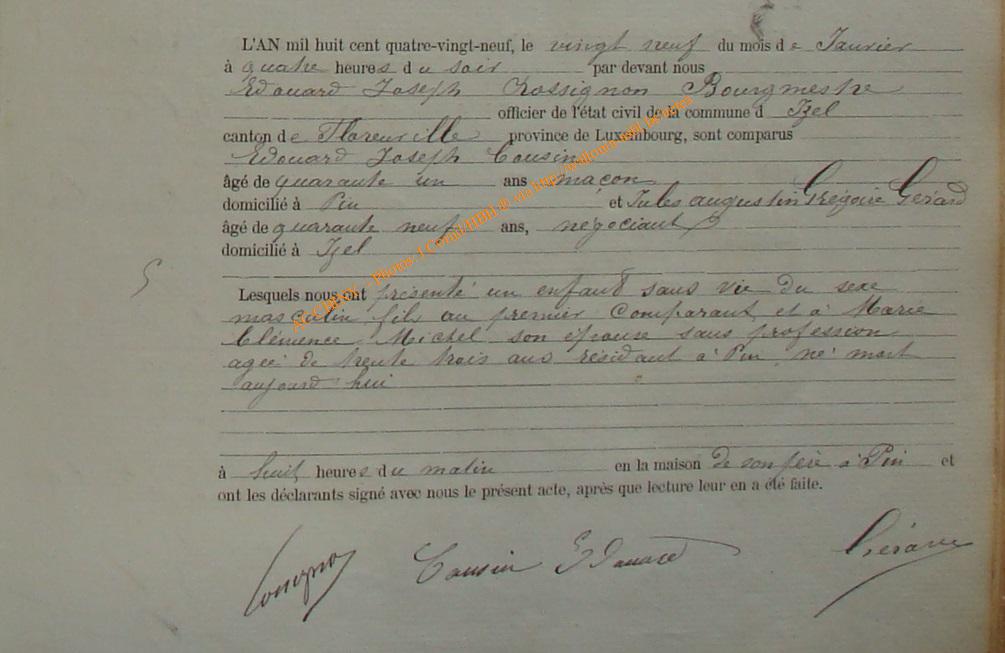 L'AN mil huit cent quatre-vingt-neuf, le vingt neuf du mois de Janvier
à quatre heures du soir par devant nous
Edouard Joseph Rossignon Bourgmestre
officier de l'état civil de la commune d Izel
canton de Florenville province de Luxembourg, sont comparus
Edouard Joseph Cousin
âgé de quarante un ans maçon
domicilié à Pin et Jules augustin Grégoire Gérard
âgé de quarante neuf ans, négociant
domicilié à Izel
5
Lesquels nous ont présenté un enfant sans vie du sexe
masculin fils au premier Comparant et à Marie
Clémence Michel son épouse sans profession
agée de trente trois ans résidant à Pin né mort
aujourd hui
à huit heures du matin en la maison de son père à Pin et
ont les déclarants signé avec nous le présent acte, après que lecture leur en a été faite.
Cousin Edouard Gérard